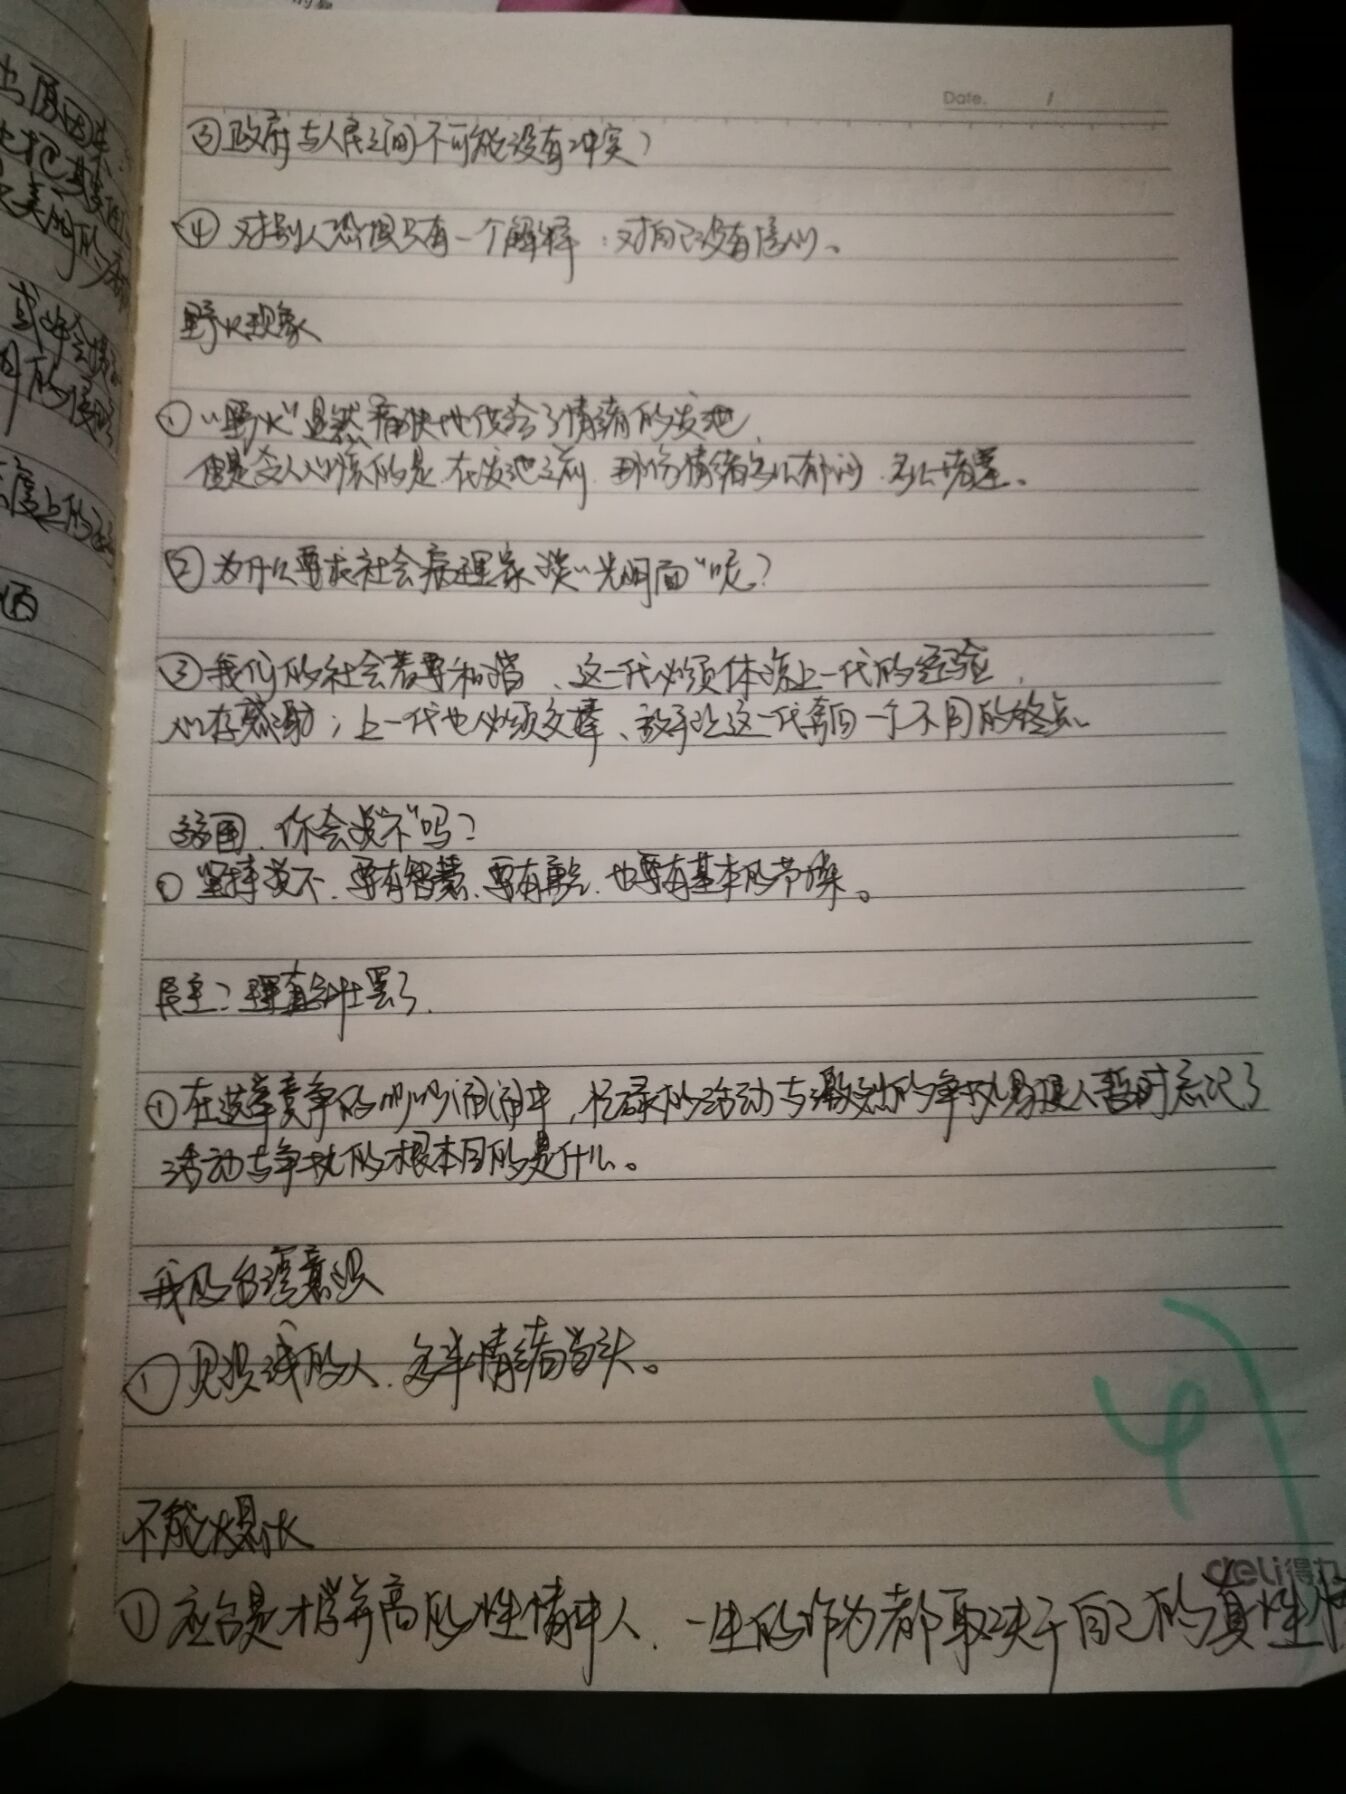 Date. /
③政府与人民之间不可能没有冲突？
④对别人恐惧只有一个解释：对自己没有信心。
野火现象
①“野火”显然痛快地供给了情绪的发泄，
但是令人心惊的是，在发泄之前，那份情绪多么郁闷，多么堵塞。
②为什么要求社会病理家谈“光明面”呢？
③我们的社会若要和谐，这一代必须体谅上一代的经验，
心存感谢；上一代也必须交棒，放手让这一代奔向一个不同的终点。
，你会说“不”吗？
①坚持说不，要有智慧，要有勇气，也要有基本的节操。
民主？理直气壮罢了。
①在选举竞争的吵吵闹闹中，忙碌的活动与激烈的争执易使人暂时忘记了
活动与争执的根本目的是什么。
我的台湾意识
①见投的人，多半情绪当头。
不能
①应台是才学并高的性情中人，一生的作为都取决于自己的真性情
deli得力
4
出原因来
美丽的
或许会
的侵
态度上的
西